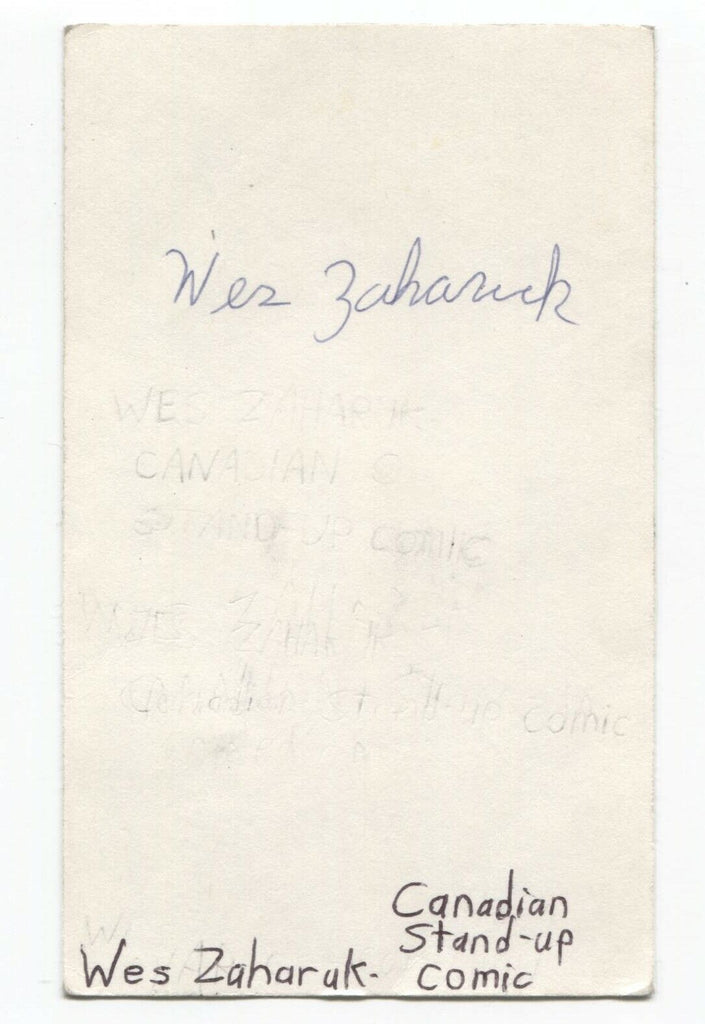 Wes Zaharuk
WES ZAHARUK
CANADIAN C
STAND-UP COMIC
WES ZAHARUK -
Canadian Stand-up comic
Canadian
Stand-up
Wes Zaharuk- Comic